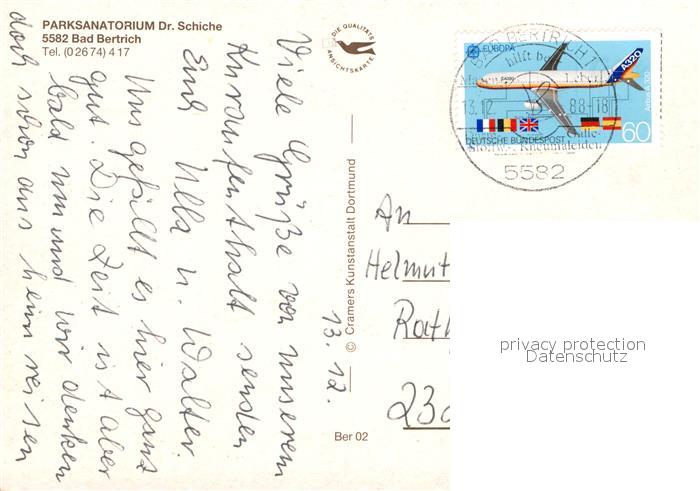 PARKSANATORIUM Dr. Schiche
5582 Bad Bertrich
Tel. (0 26 74) 4 17
DIE QUALITÄTS
ANSICHTSKARTE
13. 12.
Viele Grüße von unserem
Kuraufenthalt senden
Euch Ulla u. Walter.
Uns gefällt es hier ganz
gut. Die Zeit ist aber
bald um und wir denken
doch schon ans heim reisen
© Cramers Kunstanstalt Dortmund
Ber 02
EUROPA
A320
Airbus A 320
DEUTSCHE BUNDESPOST
60
BAD BERTRICH 1
hilft bei
Leber
13.12
88-18
Stoffw.- Rheumaleiden
5582
An
Helmut
Rath
23
privacy protection
Datenschutz